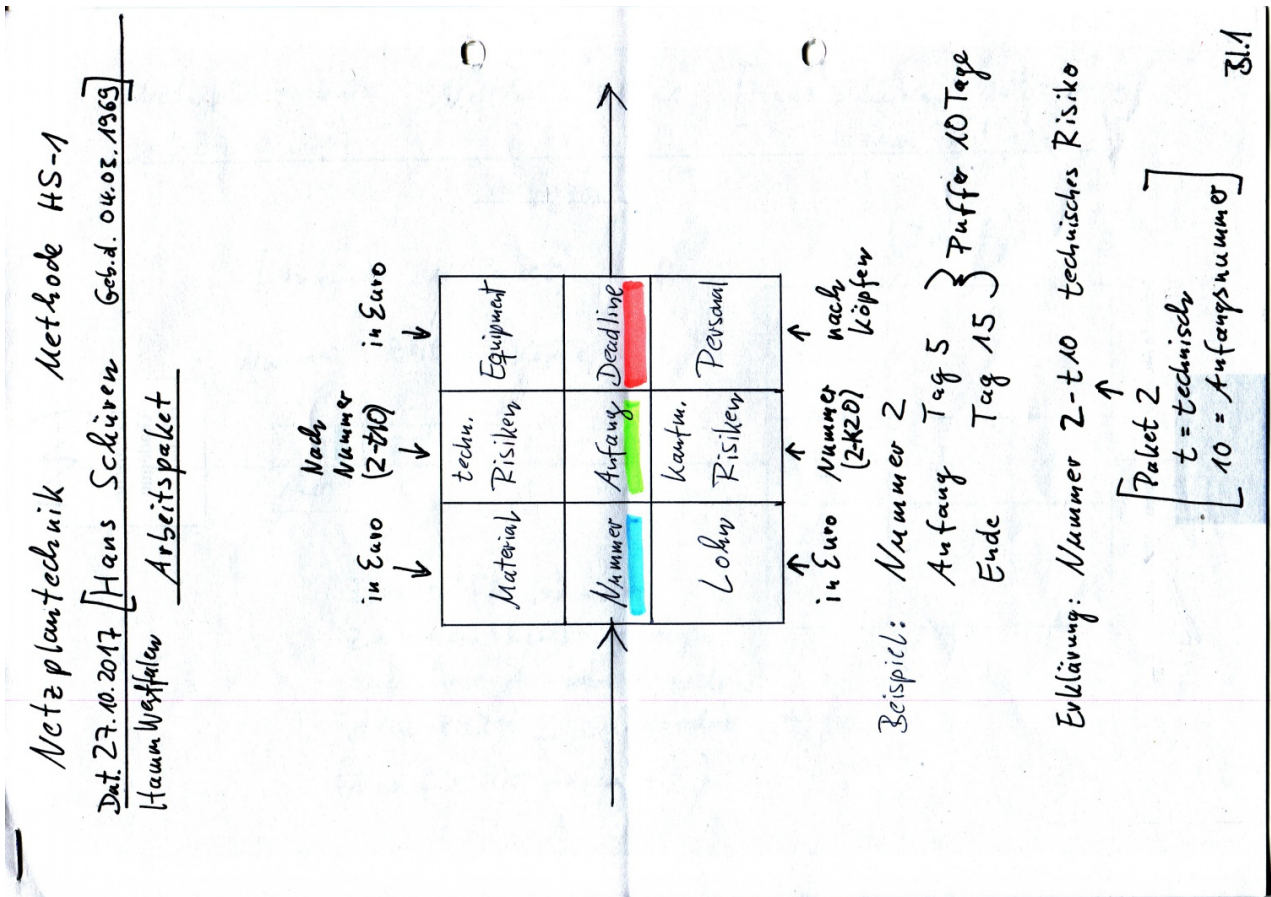 Netzplantechnik Methode HS-1
Dat. 27.10.2017 [Hans Schüren Geb.d. 04.03.1969]
Hamm Westfalen Arbeitspaket
in Euro Nach Nummer (2-t10) in Euro
Material techn. Risiken Equipment
Nummer Anfang Deadline
Lohn Kaufm. Risiken Personal
in Euro Nummer (2-K20) nach Köpfen
Beispiel: Nummer 2
Anfang Tag 5
Ende Tag 15 } Puffer 10 Tage
Erklärung: Nummer 2-t10 technisches Risiko
[Paket 2
t = technisch
10 = Anfangsnummer]
Bl.1